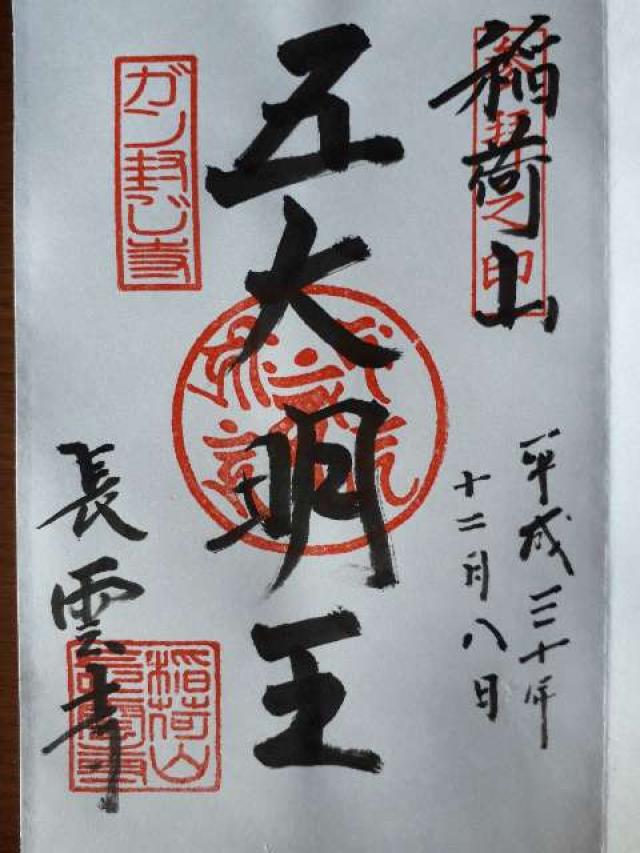 稲荷山
平成三十年
十二月八日
五大明王
ガン封じ寺
長雲寺
稲荷山
長雲寺